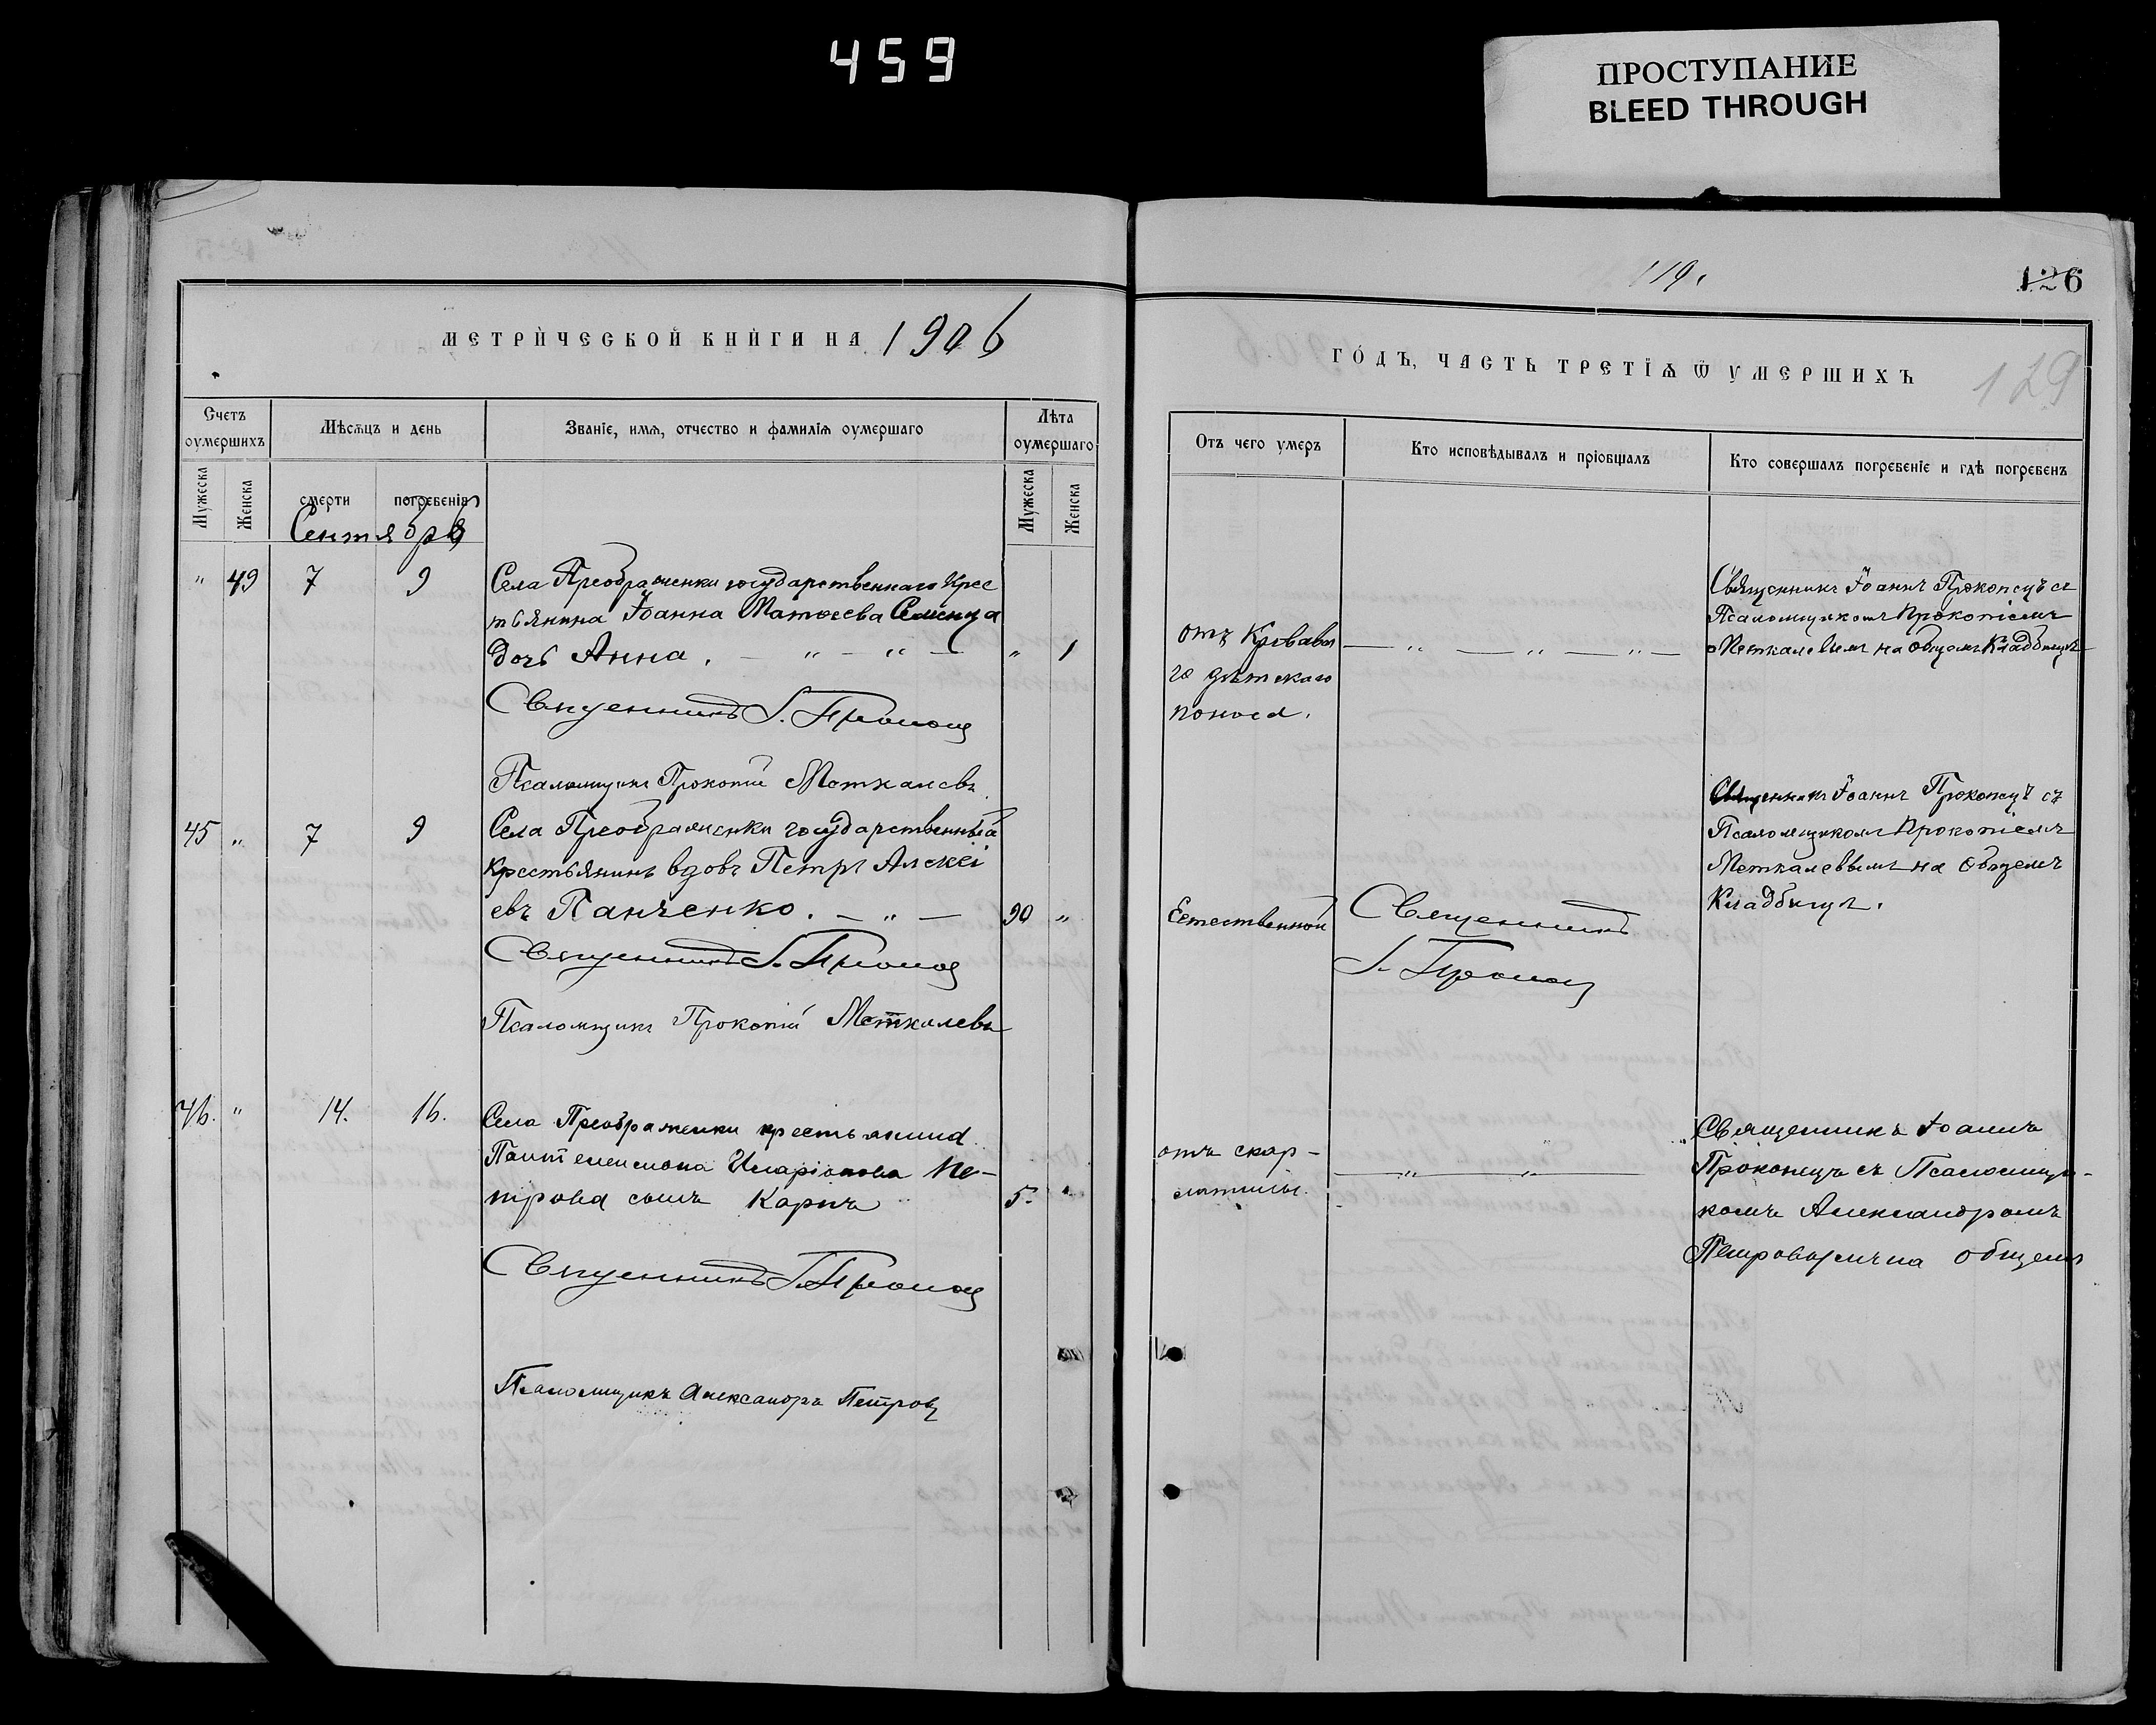 459
ПРОСТУПАНИЕ
BLEED THROUGH
119.
126
129
МЕТРИ́ЧЕСКОЙ КНИ́ГИ НА 1906
ГО́ДЪ, ЧАСТЬ ТРЕТІѦ Ѿ УМЕРШИХЪ
Счетъ оумершихъ
Мѣсѧцъ и день
Званіе, имѧ, отчество и фамиліѧ оумершаго
Лѣта оумершаго
Мужеска
Женска
смерти
погребеніѧ
Мужеска
Женска
Сентябрь
Отъ чего умеръ
Кто исповѣдывалъ и пріобщалъ
Кто совершалъ погребеніе и гдѣ погребенъ
" 49 7 9 Села Преображенки государственнаго крес
тьянина Іоанна Матѳеева
дочь Анна. — " — " — " 1
Священникъ І. Прокопец
Псаломщикъ Прокопій Меткалевъ
отъ Кроваваго
го дѣтскаго
поноса.
— " — " — " —
Священникъ Іоаннъ Прокопецъ съ
Псаломщикомъ Прокопіемъ
Меткалевымъ на общемъ Кладбищѣ
45 " 7 9 Села Преображенки государственный
крестьянинъ вдовъ Петръ Алексі
евъ Панченко. — " — 90 "
Священникъ І. Прокопец
Псаломщикъ Прокопій Меткалевъ
Естественной
Священникъ
І. Прокопец
Священникъ Іоаннъ Прокопецъ съ
Псаломщикомъ Прокопіемъ
Меткалевымъ на общемъ
Кладбищѣ.
46. " 14. 16. Села Преображенки крестьянина
Пантелеимона Иларіонова Пе-
трова сынъ Карпъ 5. "
Священникъ І. Прокопец
Псаломщикъ Александръ Петров
отъ скар-
латины.
— " — " —
Священникъ Іоаннъ
Прокопецъ съ Псаломщи-
комъ Александромъ
на общемъ